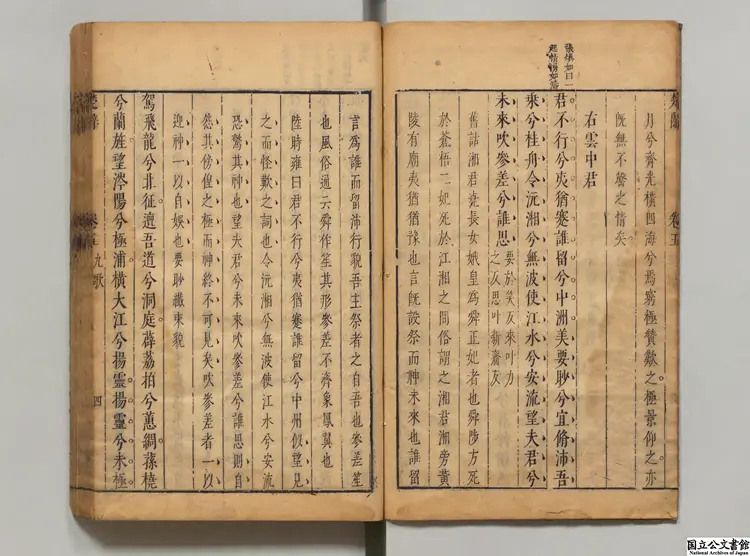 張煒如曰一
月兮齊光橫四海兮焉窮極贊歎之極景仰之亦
既無不罄之情矣
右雲中君
君不行兮夷猶蹇誰留兮中洲美要眇兮宜脩沛吾
乘兮桂舟令沅湘兮無波使江水兮安流望夫君兮
未來吹參差兮誰思
要於笑反來叶力
之反思叶新齎反
舊註湘君堯長女娥皇爲舜正妃者也舜陟方死
於蒼梧二妃死於江湘之間俗謂之湘君湘旁黃
陵有廟夷猶猶豫也言既設祭而神未來也誰留
言爲誰而留沛行貌吾主祭者之自吾也參差笙
也風俗通云舜作笙其形參差不齊象鳳翼也
陸時雍曰君不行兮夷猶蹇誰留兮中州似望見
之而怪歎之詞也令沅湘兮無波使江水兮安流
恐驚其神也望夫君兮未來吹參差兮誰思則自
怨其傍偟之極而神終不可見矣吹參差者一以
迎神一以自娛也要眇纖束貌
駕飛龍兮北征邅吾道兮洞庭薜荔拍兮蕙綢蓀橈
兮蘭旌望涔陽兮極浦橫大江兮揚靈揚靈兮未極
楚辭 卷五九歌 四
国立公文書館
National Archives of Japan